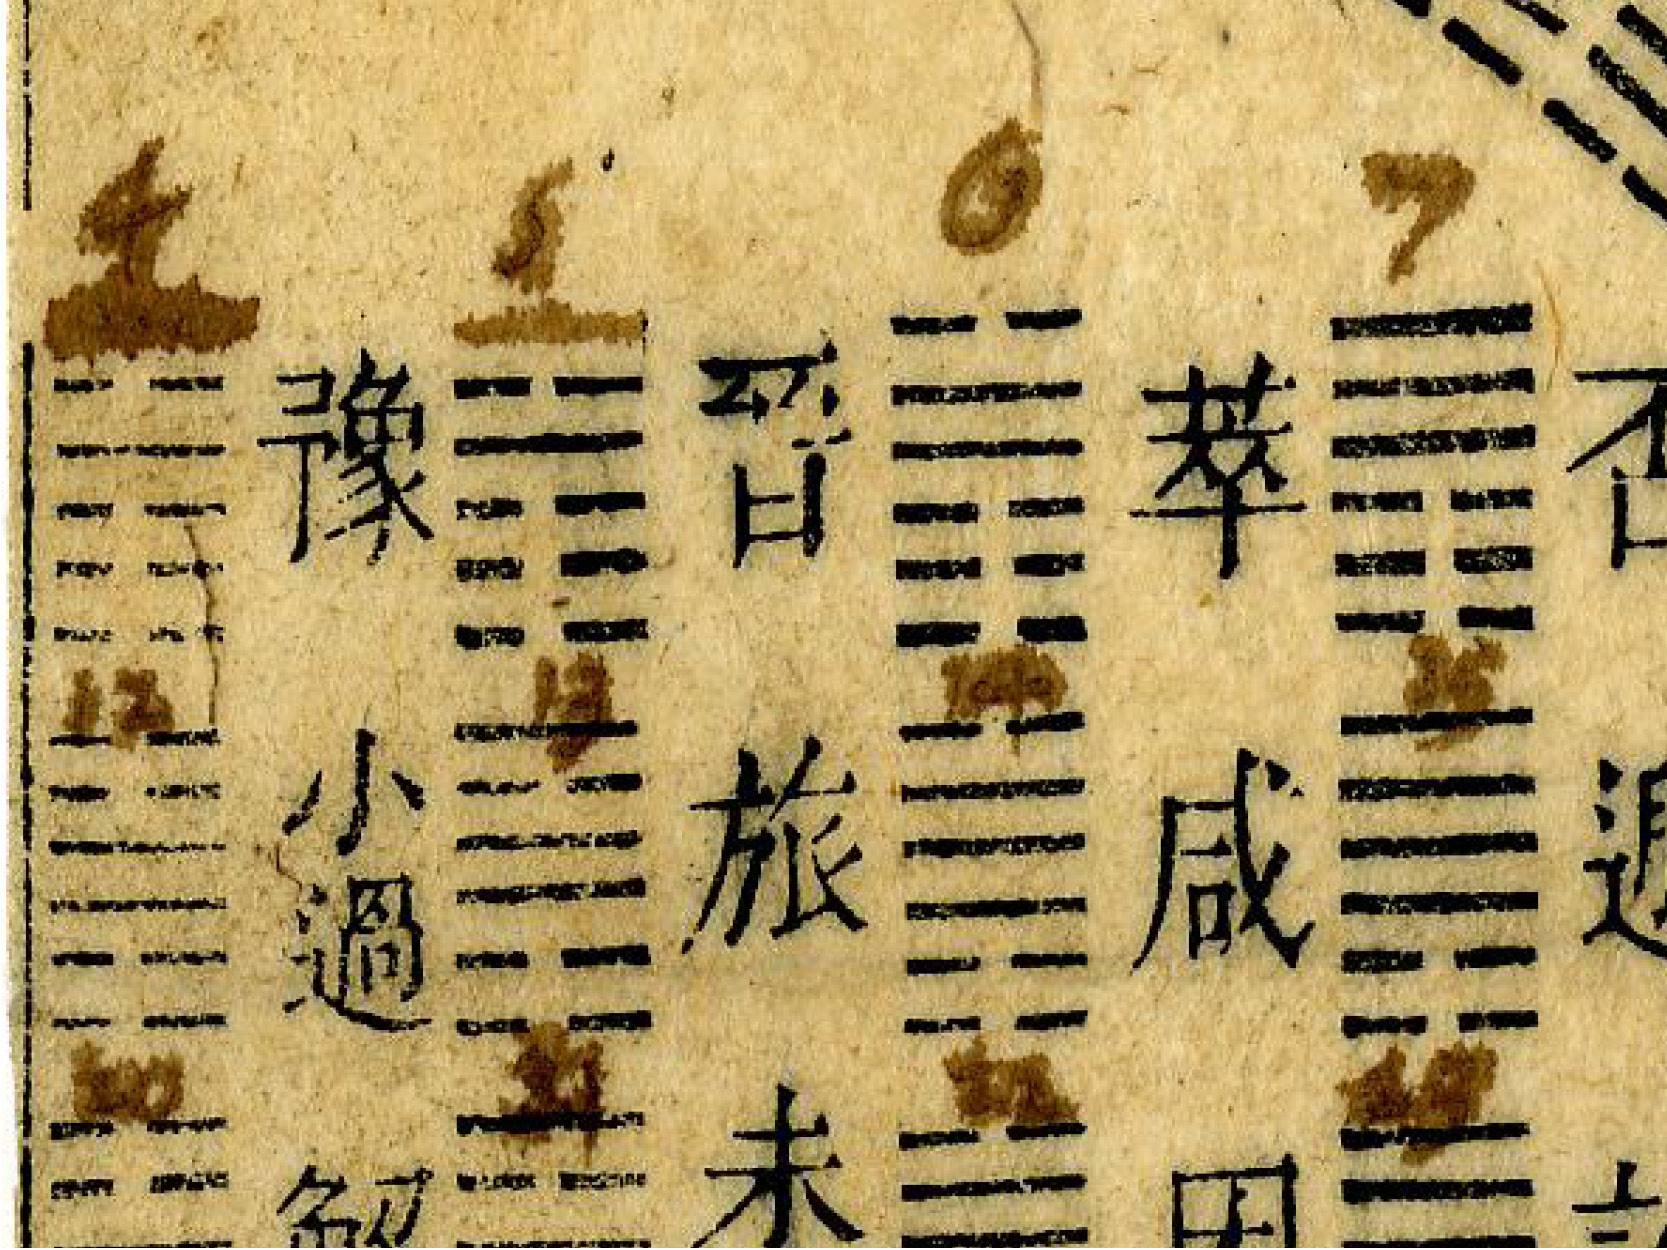 4 5 6 7
豫 晉 萃 否
12 13 14 15
小過 旅 咸 遯
20 21 22 23
解 未 困